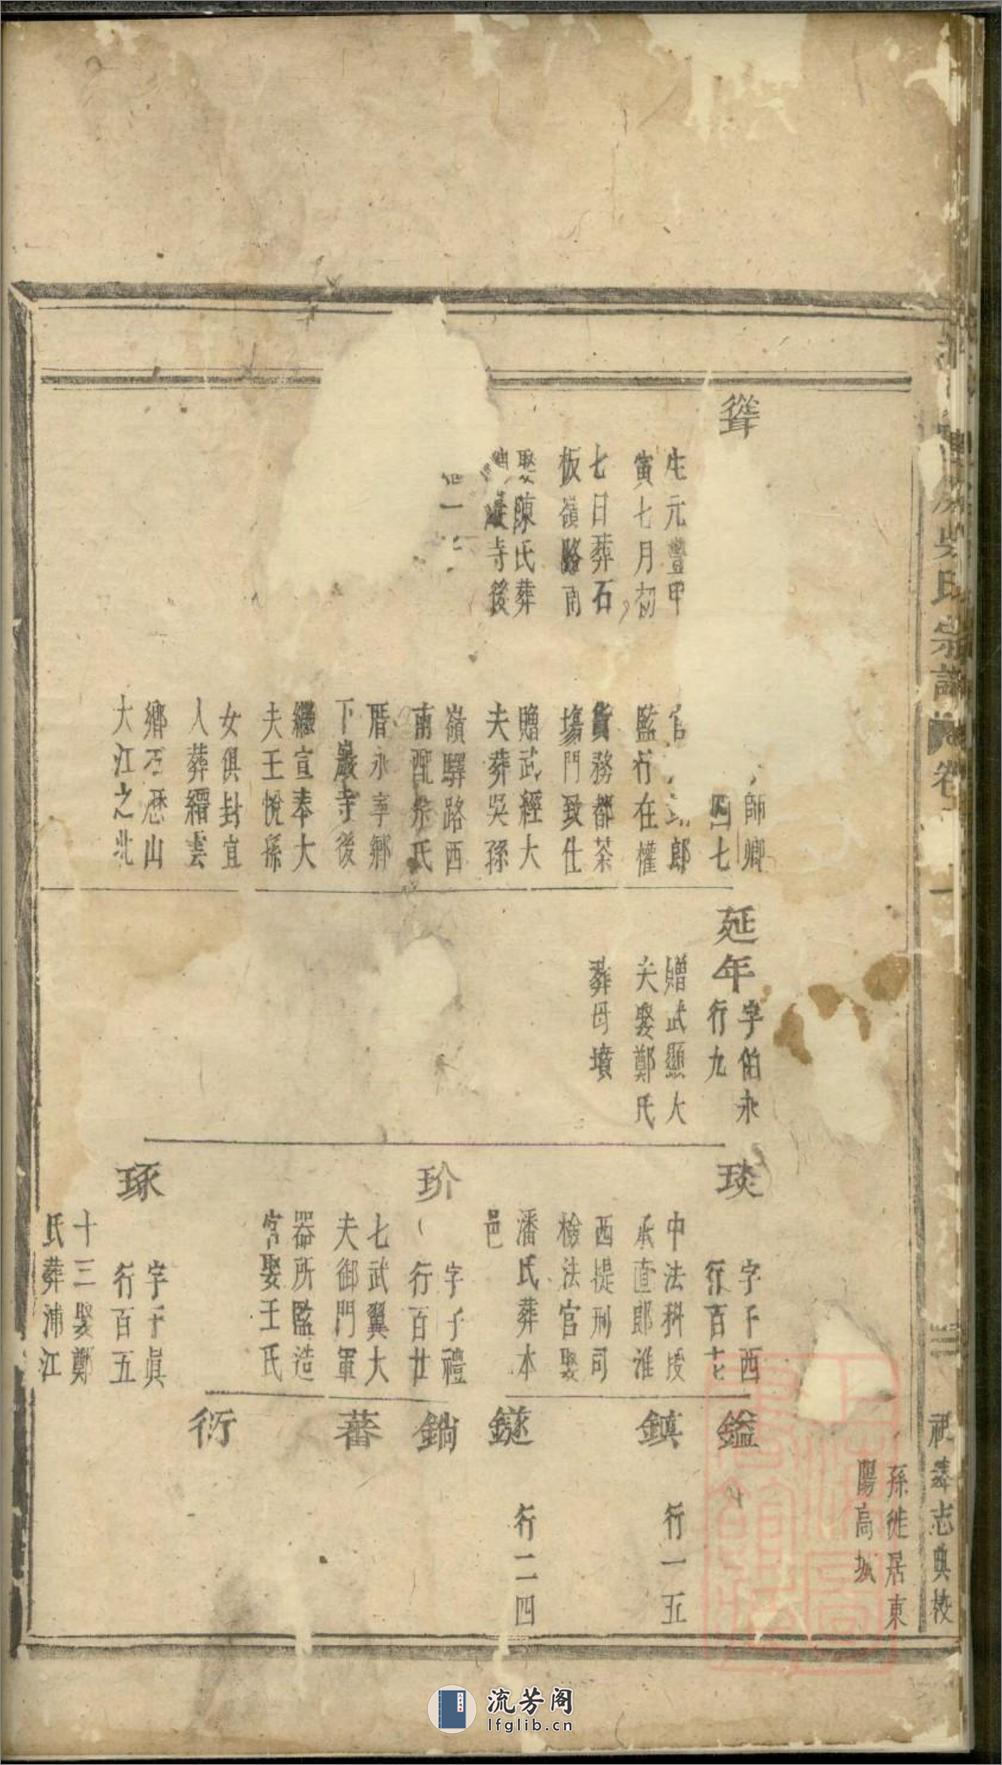 氏宗譜
卷
孫徙居東
陽高城
聳
生元豐甲
寅七月初
七日葬石
板嶺路南
娶陳氏葬
巖寺後
師卿
四七
官 郎
監行在榷
貨務都茶
場門致仕
贈武經大
夫葬吳孫
嶺驛路西
南配宗氏
厝永寧鄉
下巖寺後
繼宣奉大
夫王悅孫
女俱封宜
人葬縉雲
鄉石歷山
大江之北
延年
字伯永
行九
贈武顯大
夫娶鄭氏
葬母墳
琰
字子西
行百七
中法科授
承直郎淮
西提刑司
檢法官娶
潘氏葬本
邑
玠
字子禮
行百廿
七武翼大
夫御門軍
器所監造
官娶王氏
琢
字子眞
行百五
十三娶鄭
氏葬浦江
鎰
鎮
行一五
鐩
行二四
鋿
蕃
衍
流芳阁
lfglib.cn